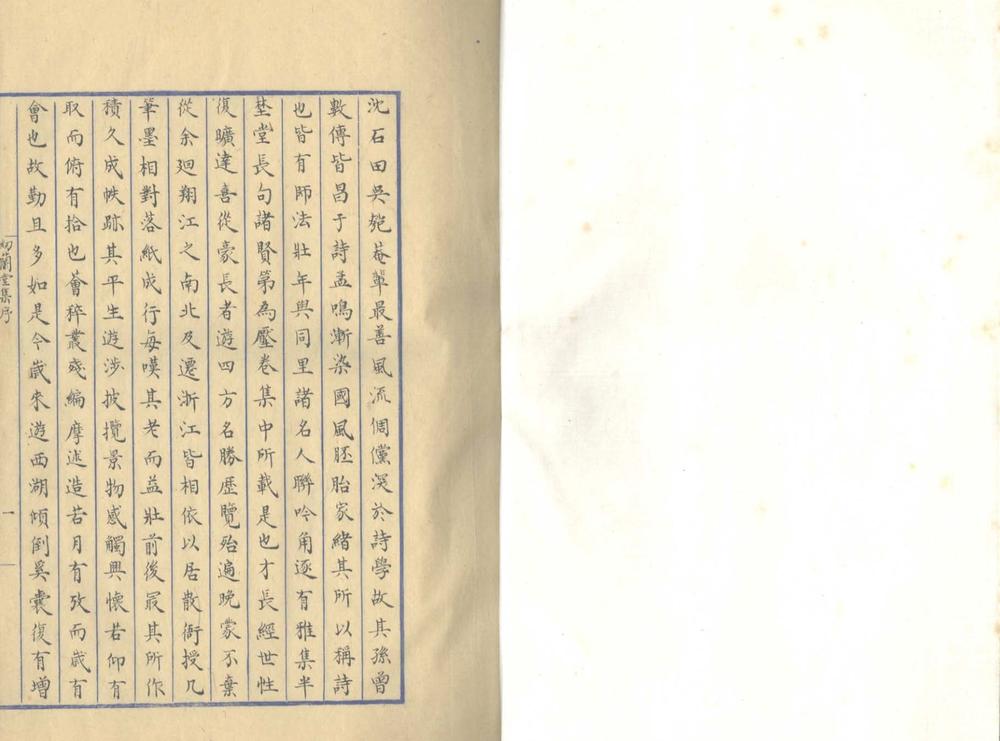 沈石田吳匏菴輩最善風流倜儻深於詩學故其孫曾
數傳皆昌于詩孟鳴漸染國風胚胎家緒其所以稱詩
也皆有師法壯年與同里諸名人聯吟角逐有雅集半
埜堂長句諸賢第為壓卷集中所載是也才長經世性
復曠達喜從豪長者遊四方名勝歷覽殆遍晚蒙不棄
從余廻翔江之南北及遷浙江皆相依以居散衙授几
筆墨相對落紙成行每嘆其老而益壯前後冣其所作
積久成帙跡其平生遊涉披攬景物感觸興懷若仰有
取而俯有拾也薈稡叢殘編摩述造若月有攷而歲有
會也故勤且多如是今歲來遊西湖傾倒奚囊復有增
紉蘭堂集序
一